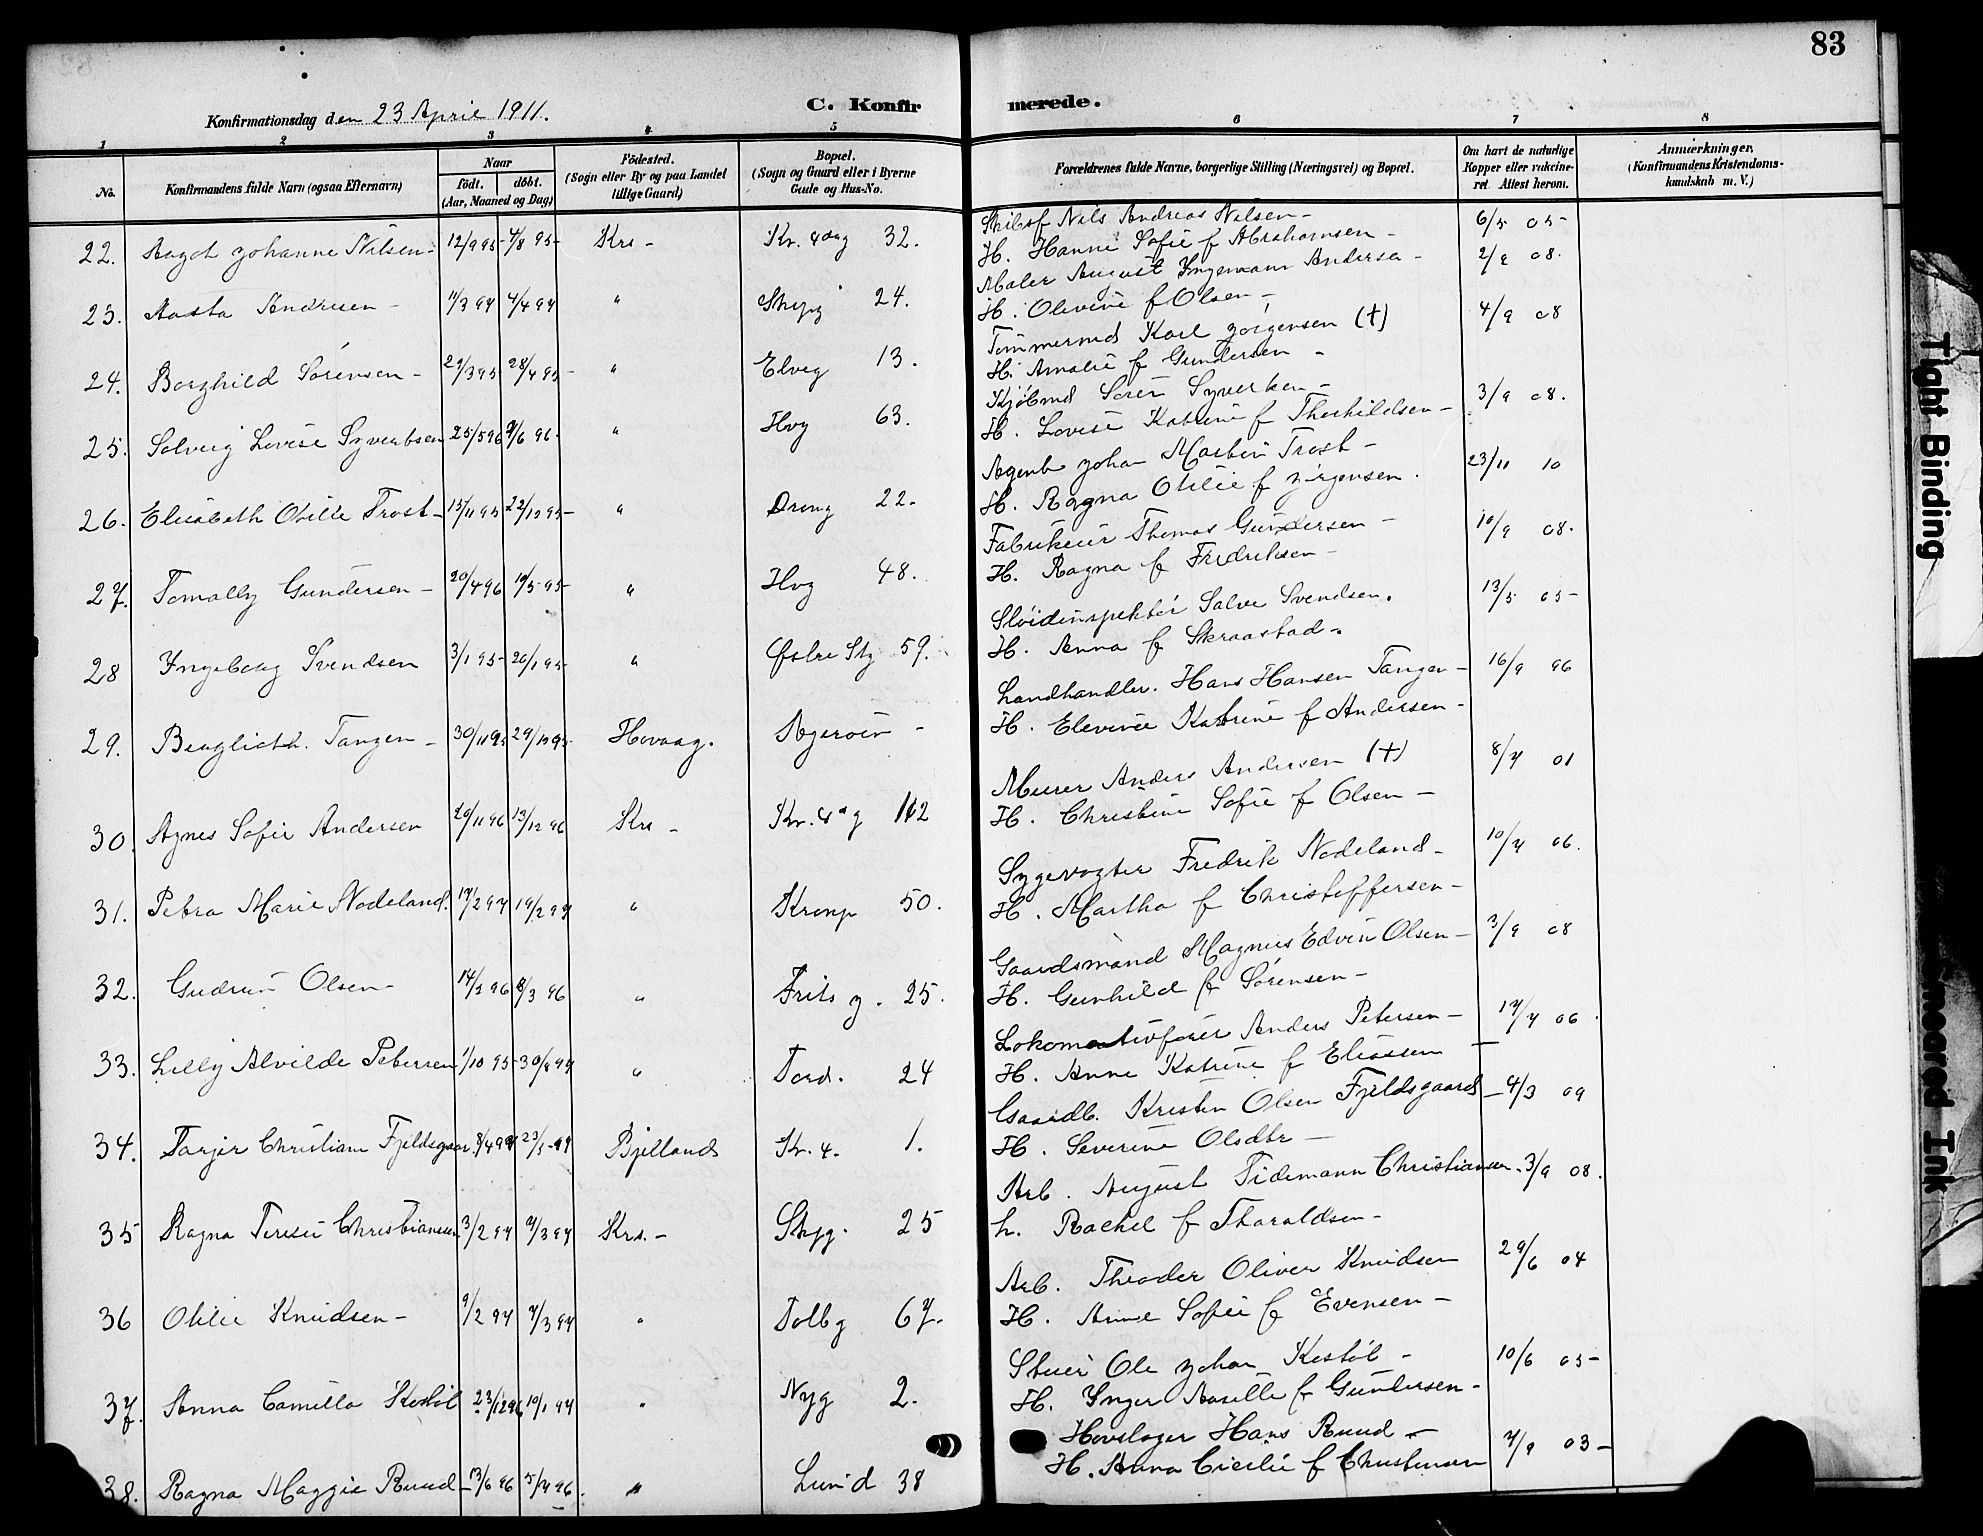 83
Konfirmationsdag den 23 April 1911.
C. Konfirmerede.
1 2 3 4 5 6 7 8
No. Konfirmandens fulde Navn (ogsaa Efternavn) Naar født. døbt. (Aar, Maaned og Dag) Fødested. (Sogn eller By og paa Landet tillige Gaard) Bopæl. (Sogn og Gaard eller i Byerne Gade og Hus-No. Forældrenes fulde Navne, borgerlige Stilling (Næringsvei) og Bopæl. Om havt de naturlige Kopper eller vaccineret. Attest herom. Anmærkninger. (Konfirmandens Kristendomskundskab m. V.)
22. Aagot Johanne Nilsen - 12/9 95 - Krs - 32. Nils Andreas Nilsen - 6/5 05 -
H. Hanne Sofie f Abrahamsen -
23. Aasta Andersen - 1/3 97 4/4 97 " Skipg 24. Maler August Ingemann Andersen - 2/9 08.
H. Olevine f Olsen -
24. Borghild Sørensen - 29/3 95 28/4 95 - " Elveg 13. Tømmermd Karl Jörgensen (+) 4/9 08
H. Amalie f Gundersen -
25. Solveig Lovise Syvertsen 25/5 96 96. " Hvg 63. Kjöbmd Sören Syvertsen - 3/9 08.
H. Lovise Katrine f Thorkildsen -
26. Elisabeth Otilie Trost - 15/11 95 22/12 95 - " Drong 22. Agent Johan Martin Trost - 23/11 10
H. Ragna Otilie f Jörgensen.
27. Tomally Gundersen - 20/4 96 " Hvg 48. Fabrikeier Thomas Gundersen - 10/9 08.
H. Ragna f Fredriksen -
28 Ingeborg Svendsen 3/1 95 - 20/1 95 - " Østre Stg 59. Sløidinspektör Salve Svendsen. 13/5 05 -
H. Anna f Skraastad -.
29. Tangen - 30/11 95 29/12 95 Hovaag. Ageröen - Landhandler. Hans Hansen Tangen - 16/9 96
H. Elevine Katrine f Andersen -
30. Agnes Sofie Andersen 29/11 96 13/12 96 Krs - 112 Murer Anders Andersen (+) 8/7 01
H. Christine Sofie f Olsen -
31. Petra Marie Nodeland. 17/2 97 19/2 97 " Kronp 50. Sygevogter Fredrik Nodeland - 10/7 06.
H. Martha f Christoffersen -
32. Gudrun Olsen - 14/2 96 8/3 96 " Frits g. 25. Gaardsmand Magnus Edvin Olsen - 3/9 08
H. Gunhild f Sørensen -
33. Lilly Alvilde Petersen 1/10 95 - " Tord. 24 Lokomotivfører Anders Petersen - 17/7 06.
H. Anne Katrine f Eliassen -
34. Tarjer Christiane Fjeldsgaar. Bjellands Kr. 4. 1. Gaardb. Kristen Olsen Fjeldsgaards - 4/3 09
H. Severine Olsdtr -
35 Ragna Terese Christiansen 3/2 97 7/3 97 Krs. - Skpg. 25 Arb. August Tidemann Christiansen. 3/9 08.
h. Rachel f Tharaldsen -
36 Otilie Knudsen - 9/2 97 7/3 97 " Tolbg 67. Arb. Theoder Oliver Knudsen 29/6 04
H. Anne Sofie f Evensen -
37. Anna Camilla Kostöl 23/12 96 10/1 97 " Nyg 2. Stuer Ole Johan Kostöl - 10/6 05 -
H. Inger Aasille f Gundersen -
38. Ragna Maggie Ruud - 13/6 96 5/7 96. " Lund 38 Hovslager Hans Ruud - 7/9 03 -
H. Anna Cicilie f Christensen
Tight Binding
Smeared Ink